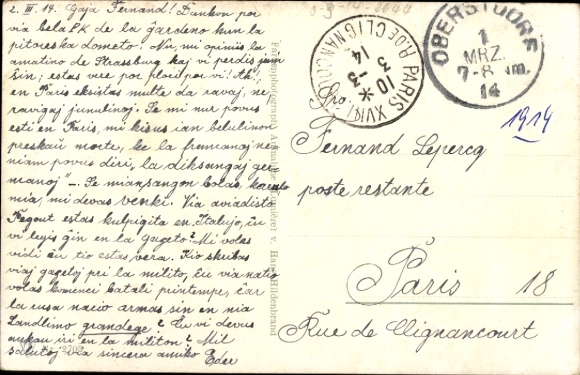 2. III. 14. Gaja Fernand! Dankon por
via bela P.K de la ĝardeno kun la
pitoreska dometo. Nu, mi opinis la
amatino de Strassburg kaj vi perdis jam
sin; estas vere por plori por vi! Ah!,
en Paris eksistas multe da ravaj, ne
ravigaj junulinoj. Se mi nur povus
esti en Paris, mi kisus ian belulinon
preskaŭ morte, ke la francanoj ne
niam povus diri, "la diksangaj ger
manoj" -. Se mian sangon bolas, karulo
mia, mi devas venki. Via aviadisto
Pegout estas kulpigita en Italujo, ĉu
vi legis ĝin en la gazeto? Mi volas
vidi ĉu tio estas vera. Kio skribas
viaj gazetoj pri la milito, ĉu via natio
volas komenci batali printempe, ĉar
la rusa nacio armas sin en nia
Landlimo grandege? Ĉu vi devus
ankau iri en la militon? Mil
salutoj via sincera amiko Eder
OBERSTDORF
1
MRZ.
7-8 Nm.
14
PARIS XVIII
R. DE CLIGNANCOURT
10 - 3
3
14
1914
Fernand Lepercq
poste restante
Paris 18
Rue de Clignancourt
v. Hans Hildenbrand